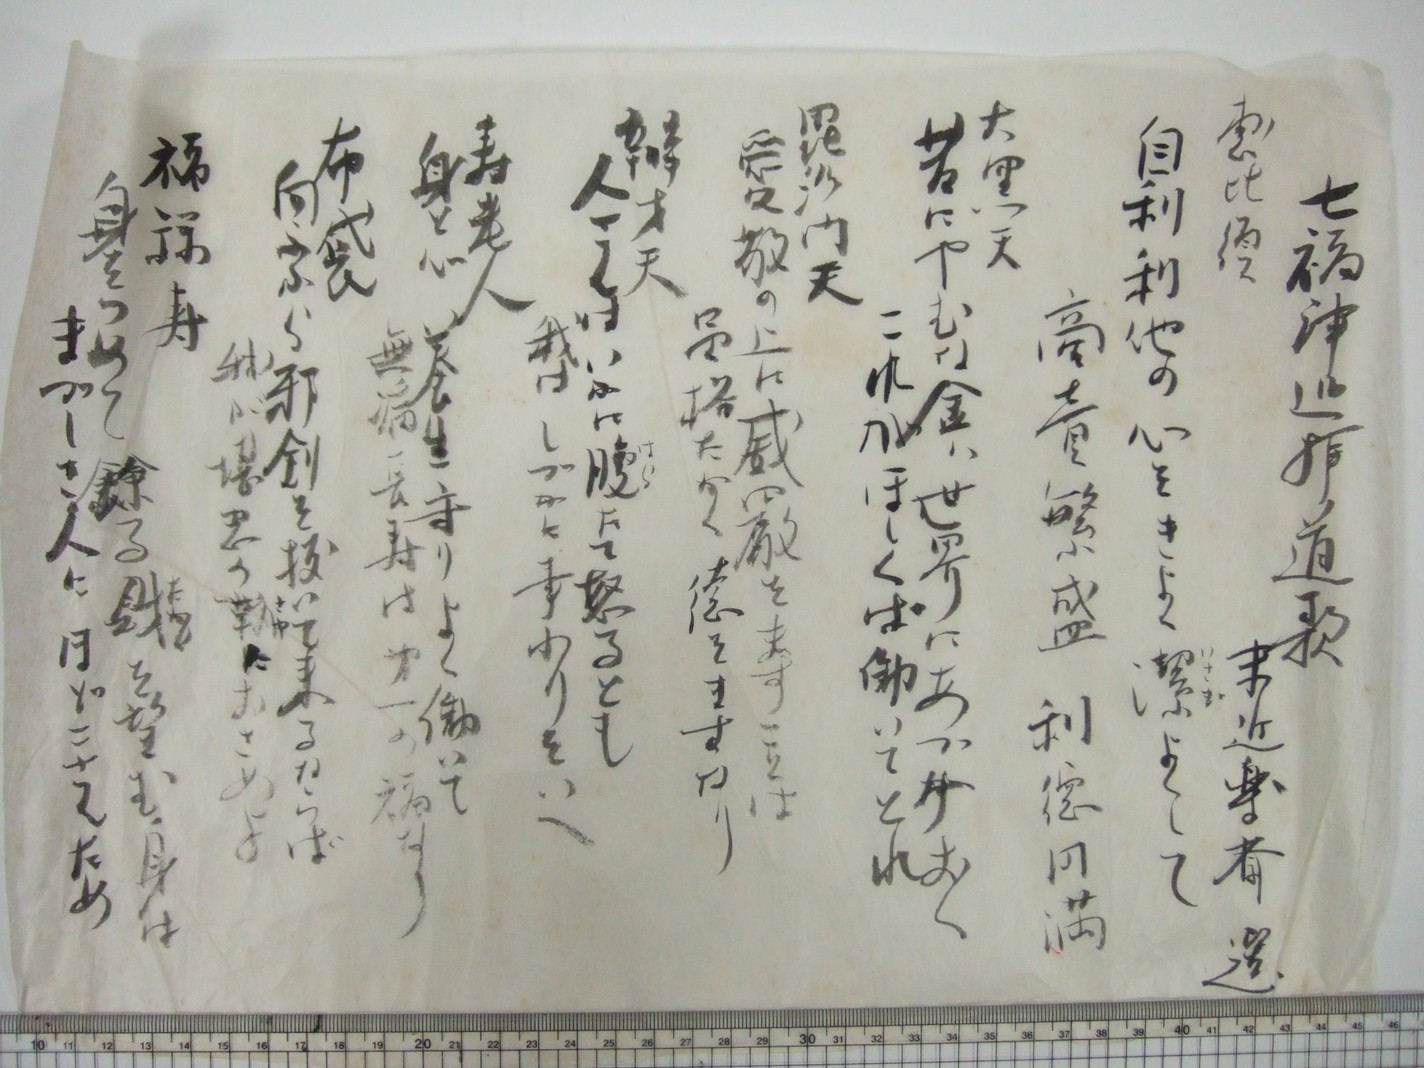 七福神巡拝道歌
末近楽斎 選
恵比須
自利利他の心をきよく潔よくして
いさぎ
商売繁盛 利徳円満
大黒天
昔にやむな金ハ世界にあづけおく
これがほしくば働いてとれ
毘沙門天
愛敬の上に威厳をます豆は
品格たかく徳をますなり
辯才天
人さんはいかに腹たて怒るとも
はら
我はしづかに事わりをいへ
寿老人
身と心 養生守りよく働いて
無病長寿は第一の福なり
布袋
向ふから邪剣を抜いて来るならば
我が堪忍の鞘におさめよ
さや
福禄寿
身をつめて餘る財を望む身は
たから
まづしき人に 日どこさんため